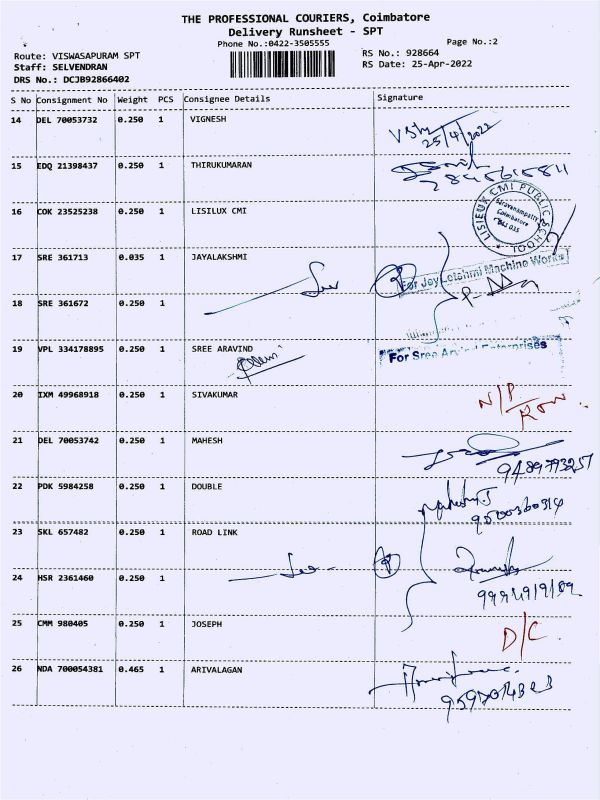 THE PROFESSIONAL COURIERS, Coimbatore
Delivery Runsheet - SPT
Phone No.:0422-3505555 Page No.:2
Route: VISWASAPURAM SPT RS No.: 928664
Staff: SELVENDRAN RS Date: 25-Apr-2022
DRS No.: DCJB92866402
S No Consignment No Weight PCS Consignee Details Signature
14 DEL 70053732 0.250 1 VIGNESH
25/4/2022
15 EDQ 21398437 0.250 1 THIRUKUMARAN
16 COK 23525238 0.250 1 LISILUX CMI
LISIEUX CMI PUBLIC SCHOOL
Saravanampatty
Coimbatore
641 035
17 SRE 361713 0.035 1 JAYALAKSHMI
For Jay Letchmi Machine Works
18 SRE 361672 0.250 1
19 VPL 334178895 0.250 1 SREE ARAVIND
For Sree Enterprises
20 IXM 49968918 0.250 1 SIVAKUMAR
N/P
21 DEL 70053742 0.250 1 MAHESH
9489793257
22 PDK 5984258 0.250 1 DOUBLE
9500360314
23 SKL 657482 0.250 1 ROAD LINK
24 HSR 2361460 0.250 1
25 CMM 980405 0.250 1 JOSEPH
D/C
26 NDA 700054381 0.465 1 ARIVALAGAN